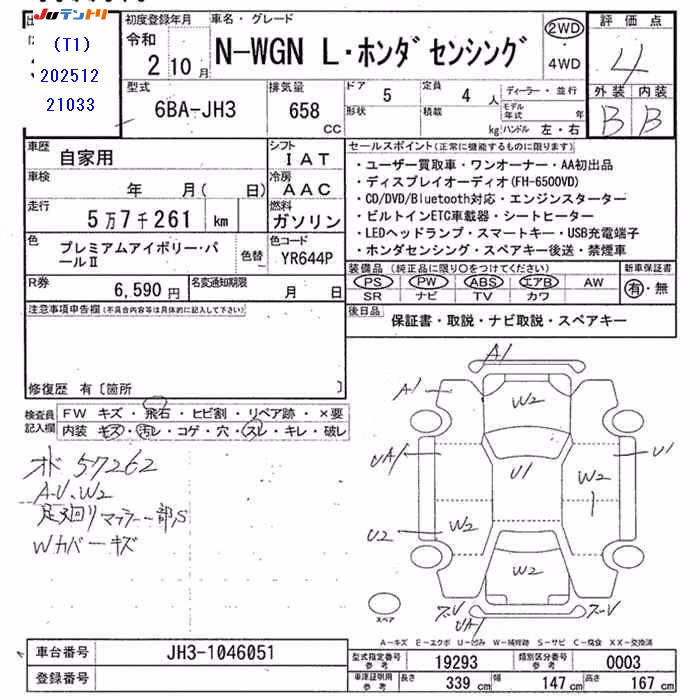 Juテントリ
(T1)
202512
21033
初度登録年月
令和
2 10月
車名・グレード
N-WGN L・ホンダセンシング
2WD
・
4WD
評価点
4
外装 内装
B B
型式
6BA-JH3
排気量
658
CC
ドア
5
定員
4 人
形状
積載
kg
ディーラー・並行
モデル年式 年
ハンドル 左・右
車歴
自家用
シフト
IAT
車検
年 月( 日)
冷房
AAC
走行
5万7千261 km
燃料
ガソリン
色
プレミアムアイボリー・パールⅡ
色替
色コード
YR644P
R券
6,590円
名変通知期限
月 日
セールスポイント(正常に機能するものに限ります)
・ユーザー買取車・ワンオーナー・AA初出品
・ディスプレイオーディオ(FH-6500VD)
・CD/DVD/Bluetooth対応・エンジンスターター
・ビルトインETC車載器・シートヒーター
・LEDヘッドランプ・スマートキー・USB充電端子
・ホンダセンシング・スペアキー後送・禁煙車
装備品(純正品に限り○をつけてください)
新車保証書
PS PW ABS エアB AW
SR ナビ TV カワ
有・無
後日品
保証書・取説・ナビ取説・スペアキー
注意事項申告欄(不具合内容等は具体的に記入して下さい)
修復歴 有〔箇所 〕
検査員記入欄
FW キズ・飛石・ヒビ割・リペア跡・×要
内装 キズ・汚レ・コゲ・穴・スレ・キレ・破レ
オド 57262
A-U、W2
足廻りマフラー一部S
Wカバーキズ
A1
A1
W2
UA1
U1
U1
W2
U2
W2
W2
UA1
スペア
A-キズ E-エクボ U-凹み W-補修跡 S-サビ C-腐食 XX-交換済
車台番号
JH3-1046051
登録番号
型式指定番号 参考
19293
類別区分番号 参考
0003
車庫証明用 参考
長さ 339 cm 幅 147 cm 高さ 167 cm